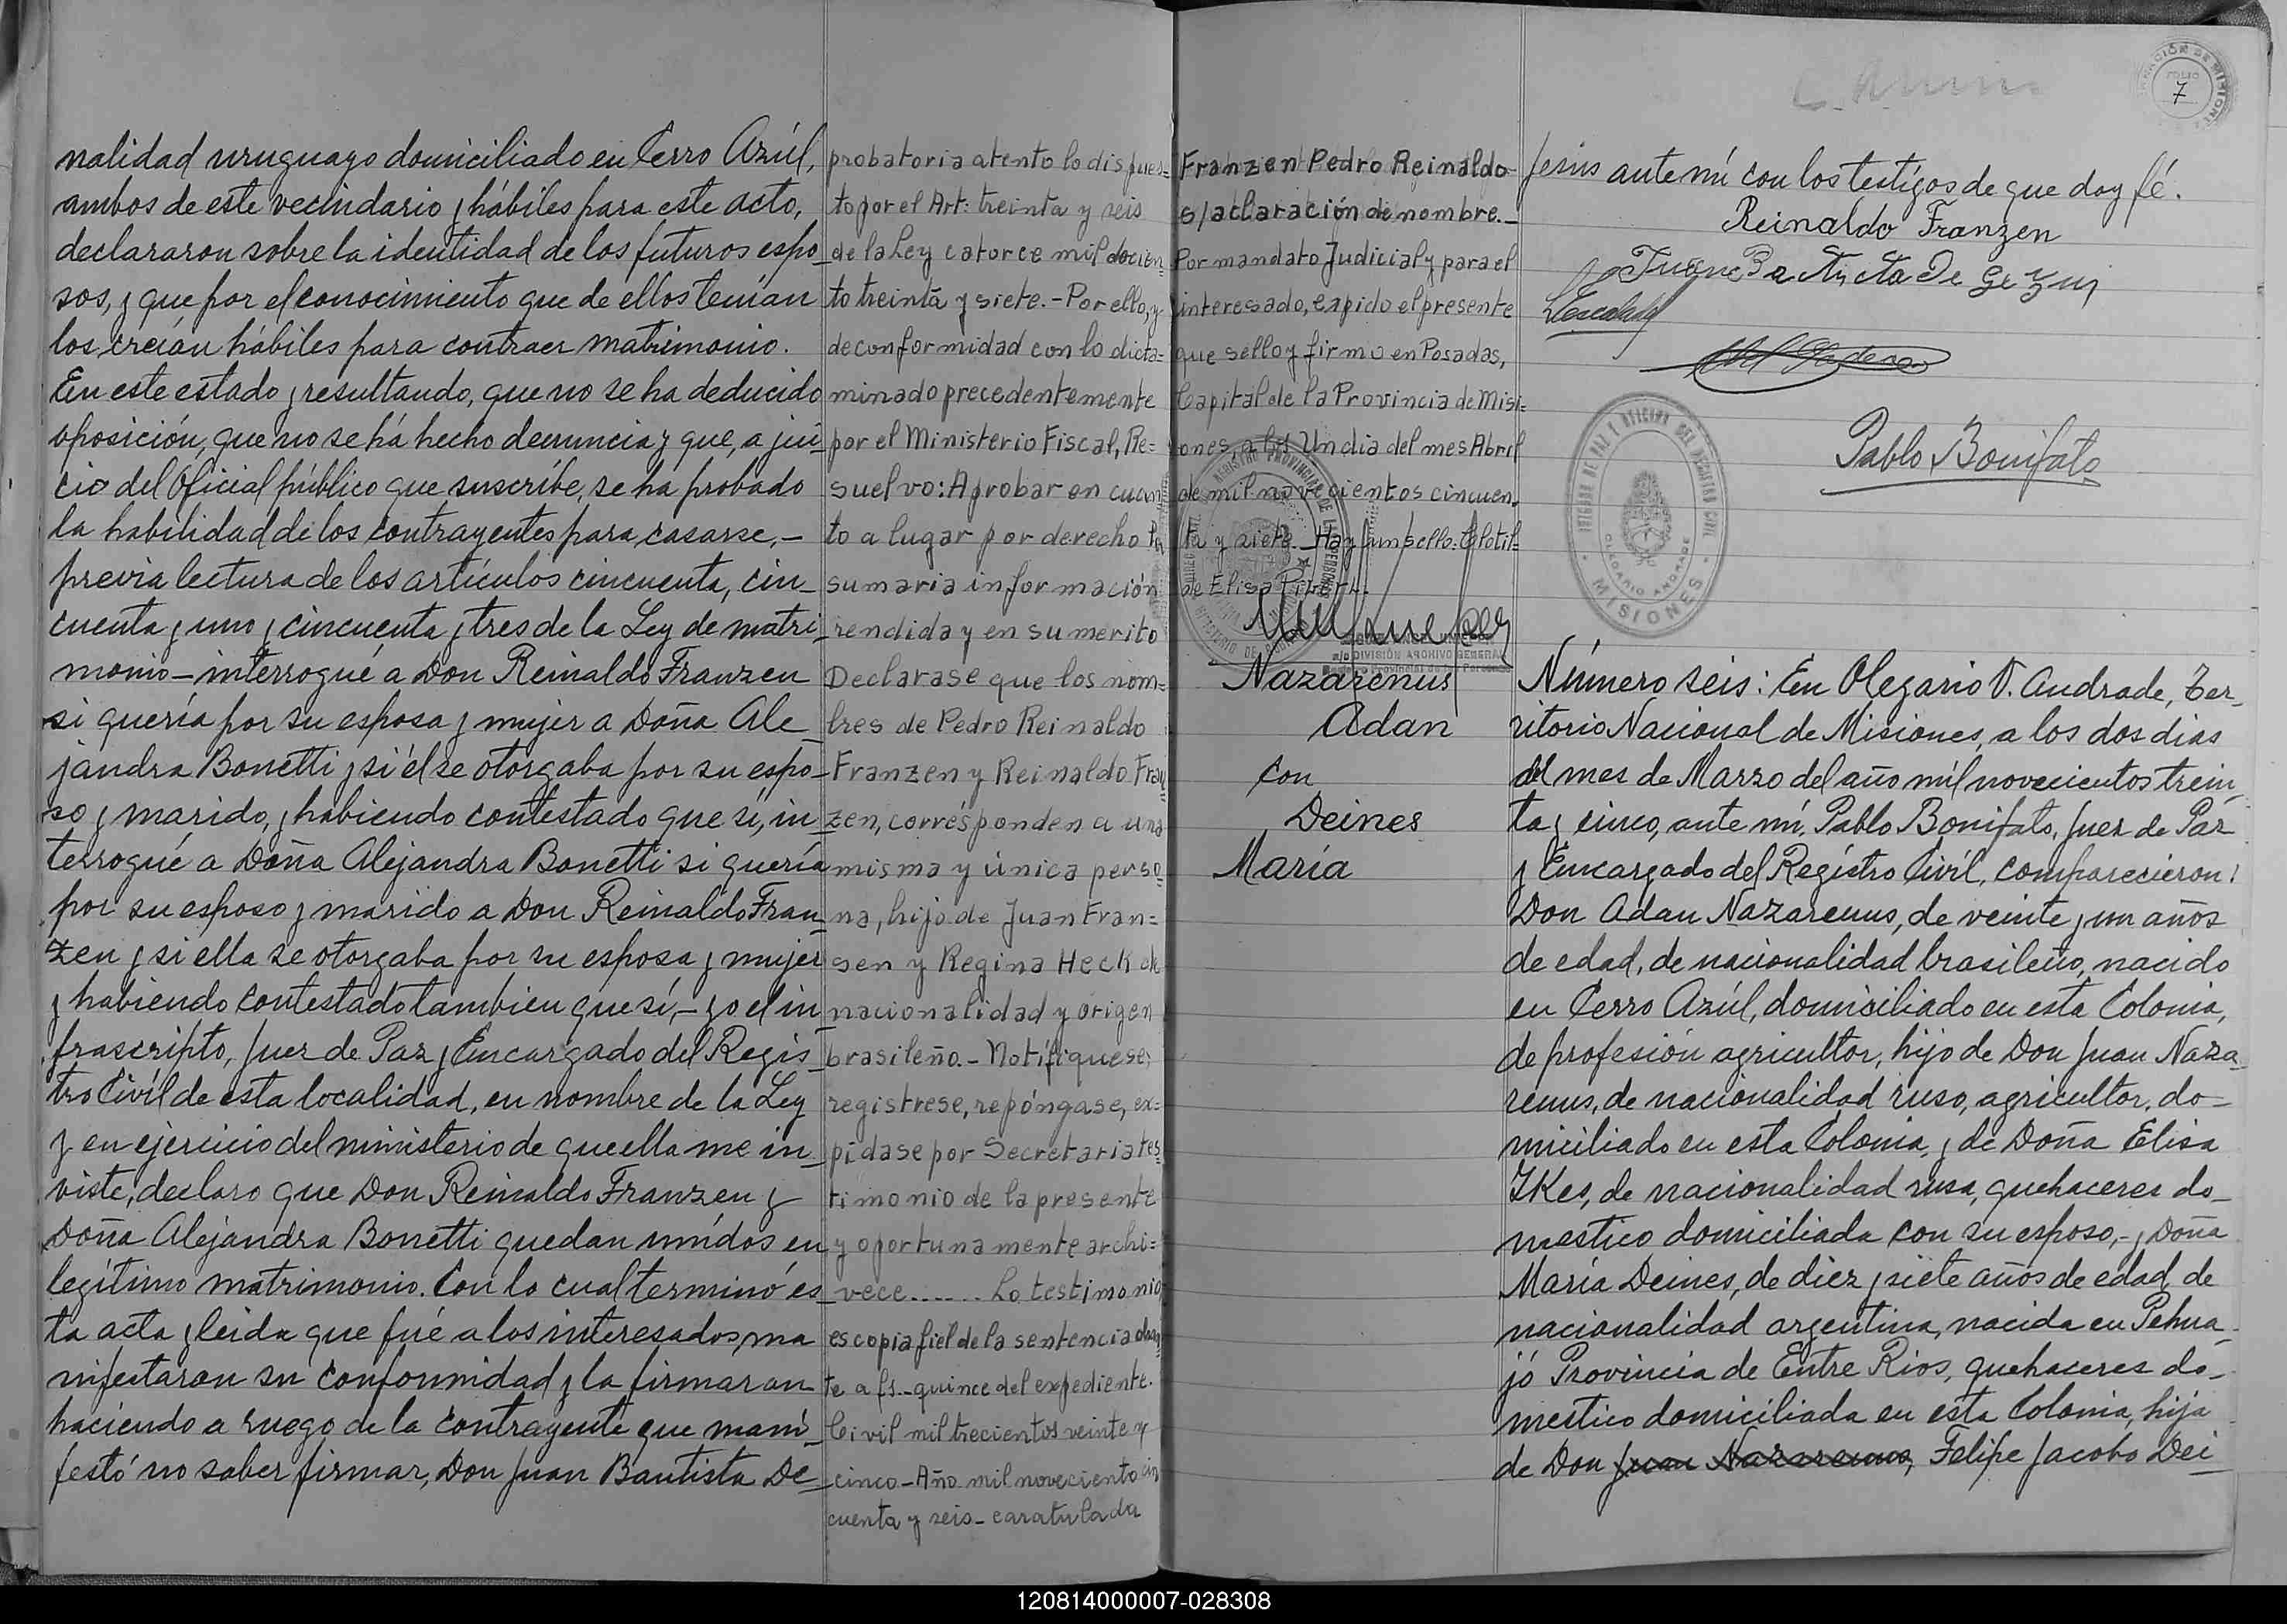 nalidad uruguayo domiciliado en Cerro Azúl,
ambos de este vecindario y hábiles para este acto,
declararon sobre la identidad de los futuros espo_
sos, y que por el conocimiento que de ellos tenían
los creían hábiles para contraer matrimonio.
En este estado y resultando, que no se ha deducido
oposición, que no se há hecho denuncia y que, a jui_
cio del Oficial público que suscribe, se ha probado
la habilidad de los contrayentes para casarse,_
previa lectura de los artículos cincuenta, cin_
cuenta y uno y cincuenta y tres de la Ley de matri_
monio_interrogué a Don Reinaldo Franzen
si quería por su esposa y mujer a Doña Ale_
jandra Bonetti y si él se otorgaba por su espo_
so y marido, y habiendo contestado que sí, in_
terrogué a Doña Alejandra Bonetti si quería
por su esposo y marido a Don Reinaldo Fran_
zen y si ella se otorgaba por su esposa y mujer
y habiendo contestado tambien que sí,_ yo el in_
frascripto, Juez de Paz y Encargado del Regis_
tro Civíl de esta localidad, en nombre de la Ley
y en ejercicio del ministerio de que ella me in_
viste, declaro que Don Reinaldo Franzen y
Doña Alejandra Bonetti quedan unídos en
legítimo matrimonio. Con lo cual terminó es_
ta acta y leida que fué a los interesados, ma
nifestaron su conformidad y la firmaron
haciendo a ruego de la contrayente que maní_
festó no saber firmar, Don Juan Bautista De_
probatoria atento lo dispues=
to por el Art: treinta y seis
de la Ley catorce mil docien=
to treinta y siete.-Por ello, y
de conformidad con lo dicta=
minado precedentemente
por el Ministerio Fiscal, Re=
suelvo: Aprobar en cuan
to a lugar por derecho la
sumaria información
rendida y en su merito
Declarase que los nom=
bres de Pedro Reinaldo
Franzen y Reinaldo Fran
zen, corrésponden a una
misma y única perso=
na, hijo de Juan Fran=
sen y Regina Heck de
nacionalidad y origen
brasileño.-Notifiquese,
registrese, repóngase, ex=
pídase por Secretaria tes=
timonio de la presente
y oportunamente archi=
vece...... Lo testimonio
es copia fiel de la sentencia obran
te a fs._quince del expediente.
Civil mil trecientos veinte y
cinco_Año mil noveciento cin
cuenta y seis_caratulada
Franzen Pedro Reinaldo
s/aclaración de nombre._
Por mandato Judicial y para el
interesado, expido el presente
que sello y firmo en Posadas,
Capital de la Provincia de Misi=
ones, a los Un dia del mes Abril
de mil novecientos cincuen=
ta y siete._Hay un sello: Clotil=
de Elisa
DIVISIÓN ARCHIVO GENERAL
Nazarenus
Adan
con
Deines
María
FOLIO
7
Jesús ante mí con los testigos de que doy fé.
Reinaldo Franzen
Pablo Bonifato
JUZGADO DE PAZ Y OFICINA DEL REGISTRO CIVIL
OLEGARIO ANDRADE
MISIONES
Número seis: En Olegario V. Andrade, Ter_
ritorio Nacional de Misiones, a los dos dias
del mes de Marzo del año mil novecientos trein_
ta y cinco, ante mí, Pablo Bonifato, Juez de Paz
y Encargado del Regístro Civíl, comparecieron:
Don Adan Nazarenus, de veinte y un años
de edad, de nacionalidad brasileño, nacido
en Cerro Azúl, domiciliado en esta Colonia,
de profesión agricultor, hijo de Don Juan Naza_
renus, de nacionalidad ruso, agricultor, do_
miciliado en esta Colonia, y de Doña Elisa
IKes, de nacionalidad rusa, quehaceres do_
mestico domiciliada con su esposo,_ y Doña
María Deines, de diez y siete años de edad, de
nacionalidad argentina, nacida en Pehua_
jó Provincia de Entre Rios, quehaceres do_
mestico domiciliada en esta Colonia, hija
de Don Juan Nazarenus, Felipe Jacobo Dei_
120814000007-028308